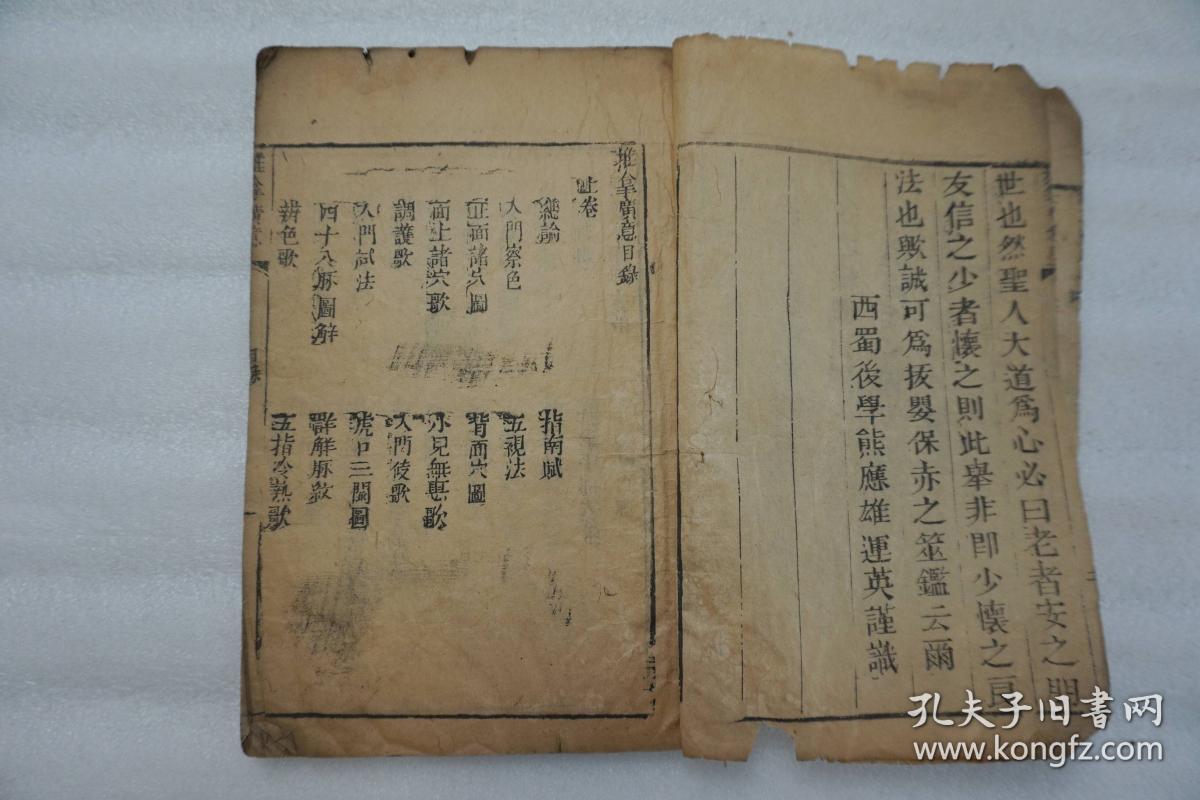 世也然聖人大道爲心必曰老者安之朋
友信之少者懷之則此舉非即少懷之
法也歟誠可爲拔嬰保赤之筮鑑云爾
西蜀後學熊應雄運英謹識
推拿廣意目錄
上卷
總論
指南賦
入門察色
五視法
正面諸穴圖
背面穴圖
面上諸穴歌
小兒無患歌
調護歌
入門候歌
入門試法
虎口三關圖
四十八脉圖解
詳解脉紋
辨色歌
五指冷熱歌
推拿廣意
目錄
孔夫子旧书网
www.kongfz.com